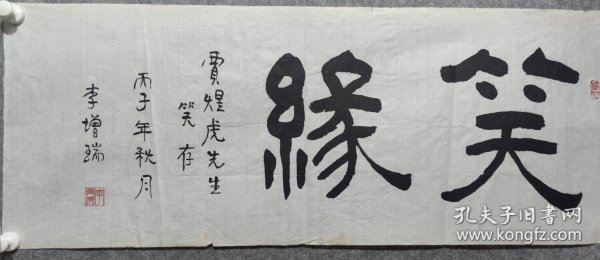 笑緣
賈煜虎先生
笑存
丙子年秋月
李增瑞
孔夫子旧书网
www.kongfz.com